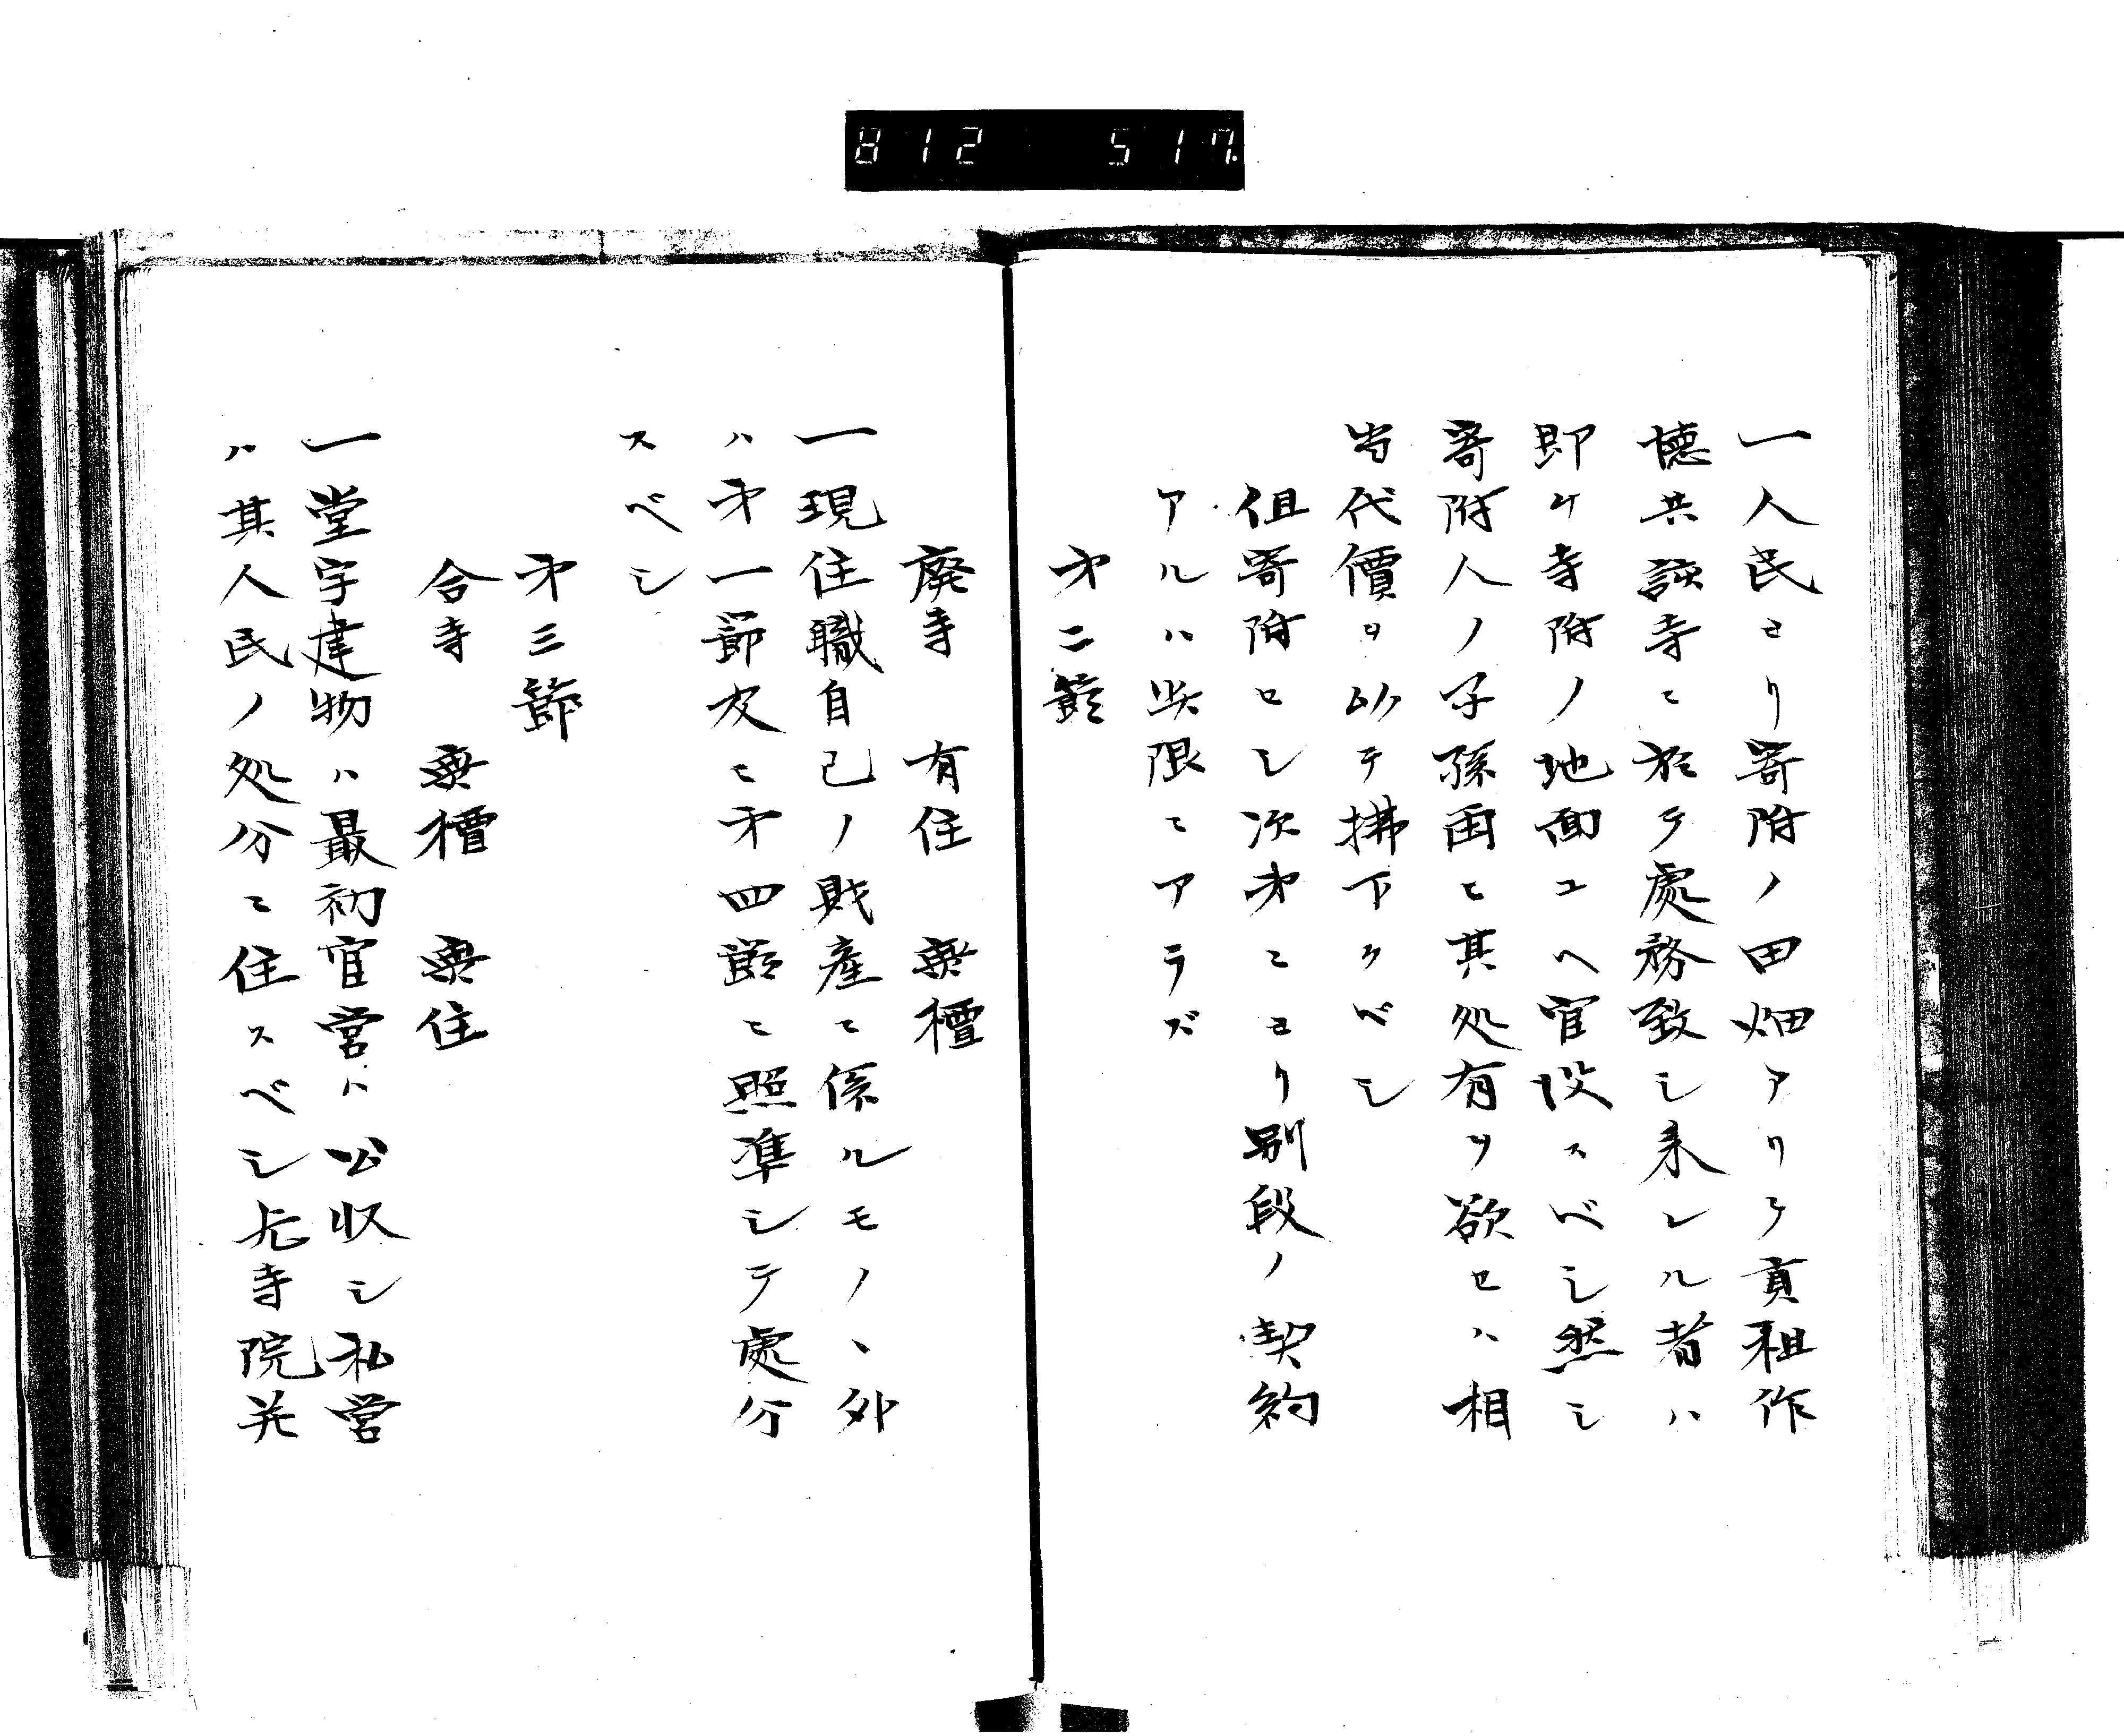 812 517.
一人民ヨリ寄附ノ田畑アリテ貢租作
徳共該寺ニ於テ處務致シ来レル者ハ
即ケ寺附ノ地面ユヘ官没スベシ然シ
寄附人ノ子孫由ニ其処有ヲ欲セハ相
当代價ヲ以テ拂下クベシ
但寄附セシ次才ニヨリ別段ノ契約
アルハ此限ニアラズ
才二節
廃寺 有住 無檀
一現住職自己ノ財産ニ係ルモノヽ外
ハ才一節及ニ才四節ニ照準シテ處分
スベシ
才三節
合寺 無檀 無住
一堂宇建物ハ最初官営ハ公収シ私営
ハ其人民ノ処分ニ任スベシ尤寺院共